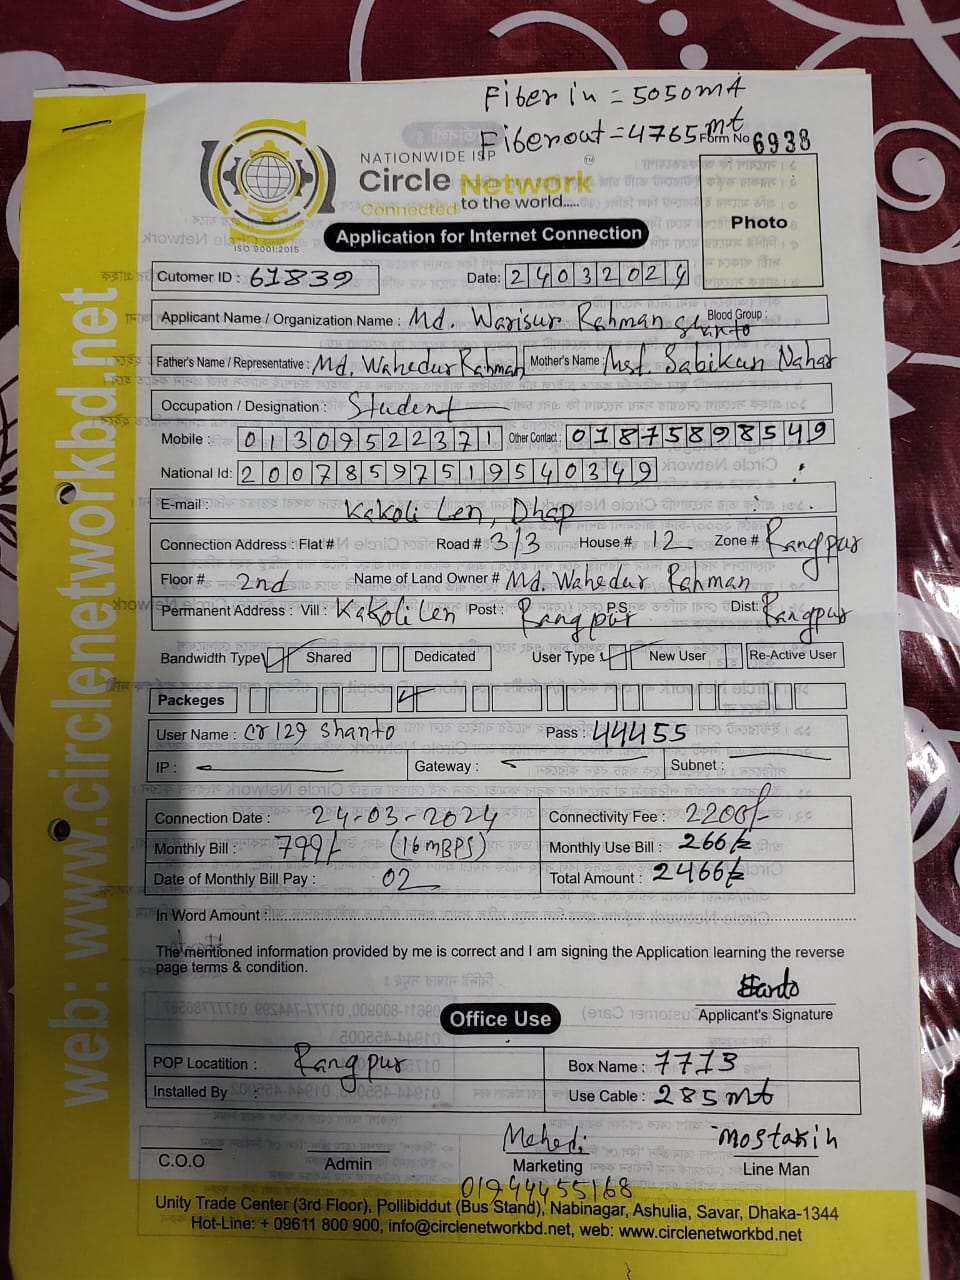 Fiber in = 5050 mt
Fiber out = 4765 mt
Form No 6938
NATIONWIDE ISP
Circle Network TM
Connected to the world.....
ISO 9001:2015
Photo
Application for Internet Connection
Cutomer ID : 61839 Date: 24032024
Applicant Name / Organization Name : Md. Warisur Rahman Shanto Blood Group :
Father's Name / Representative : Md. Wahedur Rahman Mother's Name : Mst. Sabikun Nahar
Occupation / Designation : Student
Mobile : 01309522371 Other Contact : 01875898549
National Id: 20078597519540349
E-mail :
Kakoli Len, Dhap
Connection Address : Flat # Road # 3/3 House # 12 Zone # Rangpur
Floor # 2nd Name of Land Owner # Md. Wahedur Rahman
Permanent Address : Vill : Kakoli Len Post : Rangpur P.S: Dist: Rangpur
Bandwidth Type Shared Dedicated User Type : New User Re-Active User
Packeges
User Name : cr129 shanto Pass : 44455
IP : Gateway : Subnet :
Connection Date : 24-03-2024 Connectivity Fee : 2200/-
Monthly Bill : 799/- (16 MBPS) Monthly Use Bill : 266/-
Date of Monthly Bill Pay : 02 Total Amount : 2466/-
In Word Amount :
The mentioned information provided by me is correct and I am signing the Application learning the reverse
page terms & condition.
Shanto
Applicant's Signature
Office Use
POP Locatition : Rangpur Box Name : 7713
Installed By : Use Cable : 285 mt
Mehedi Mostakin
C.O.O Admin Marketing Line Man
01944455168
Unity Trade Center (3rd Floor), Pollibiddut (Bus Stand), Nabinagar, Ashulia, Savar, Dhaka-1344
Hot-Line: + 09611 800 900, info@circlenetworkbd.net, web: www.circlenetworkbd.net
web: www.circlenetworkbd.net